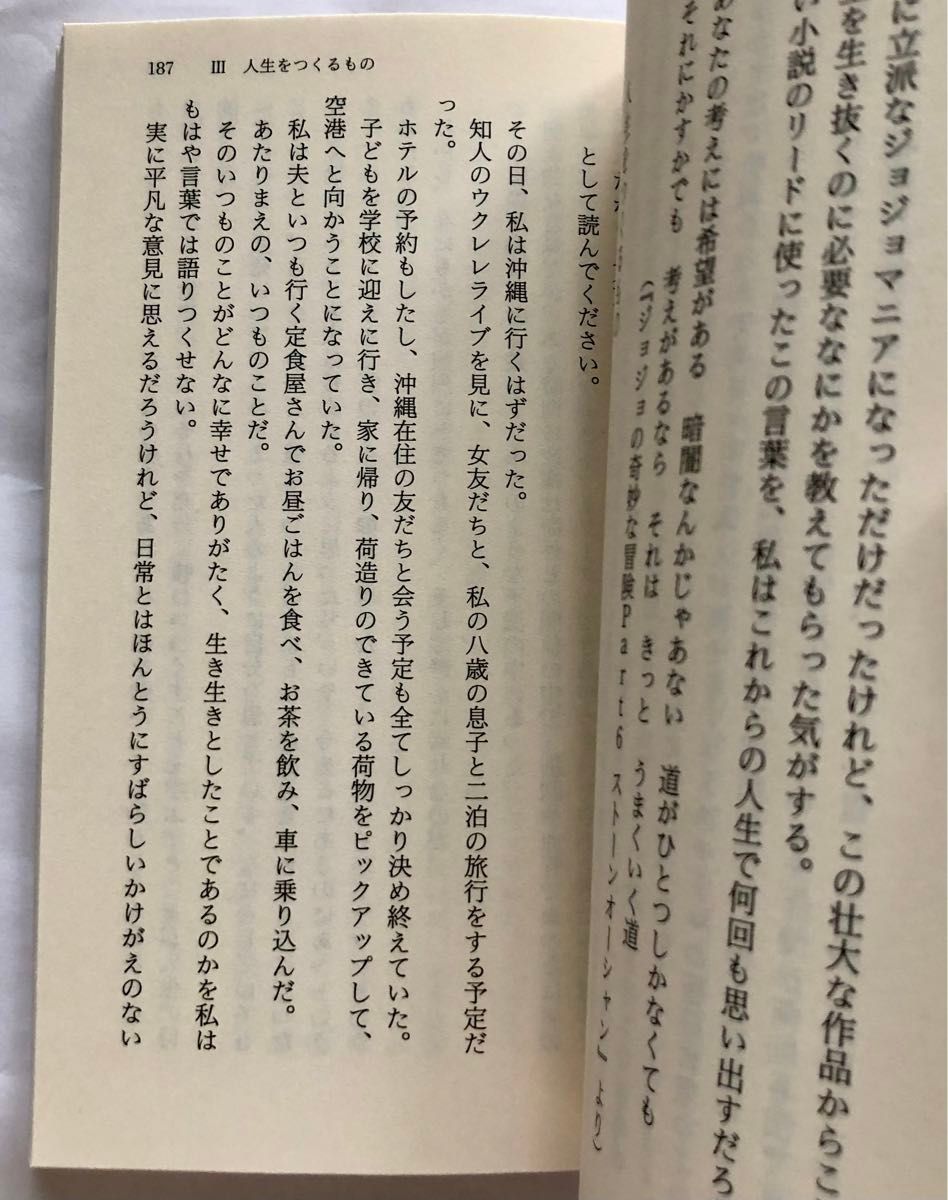 に立派なジョジョマニアになっただけだったけれど、この壮大な作品からこ
を生き抜くのに必要ななにかを教えてもらった気がする。
い小説のリードに使ったこの言葉を、私はこれからの人生で何回も思い出すだろ
あなたの考えには希望がある　暗闇なんかじゃあない　道がひとつしかなくても
それにかすかでも　考えがあるなら　それは　きっと　うまくいく道
（『ジョジョの奇妙な冒険Part6 ストーンオーシャン』より）
187　Ⅲ　人生をつくるもの
として読んでください。
その日、私は沖縄に行くはずだった。
知人のウクレレライブを見に、女友だちと、私の八歳の息子と二泊の旅行をする予定だ
った。
ホテルの予約もしたし、沖縄在住の友だちと会う予定も全てしっかり決め終えていた。
子どもを学校に迎えに行き、家に帰り、荷造りのできている荷物をピックアップして、
空港へと向かうことになっていた。
私は夫といつも行く定食屋さんでお昼ごはんを食べ、お茶を飲み、車に乗り込んだ。
あたりまえの、いつものことだ。
そのいつものことがどんなに幸せでありがたく、生き生きとしたことであるのかを私は
もはや言葉では語りつくせない。
実に平凡な意見に思えるだろうけれど、日常とはほんとうにすばらしいかけがえのない